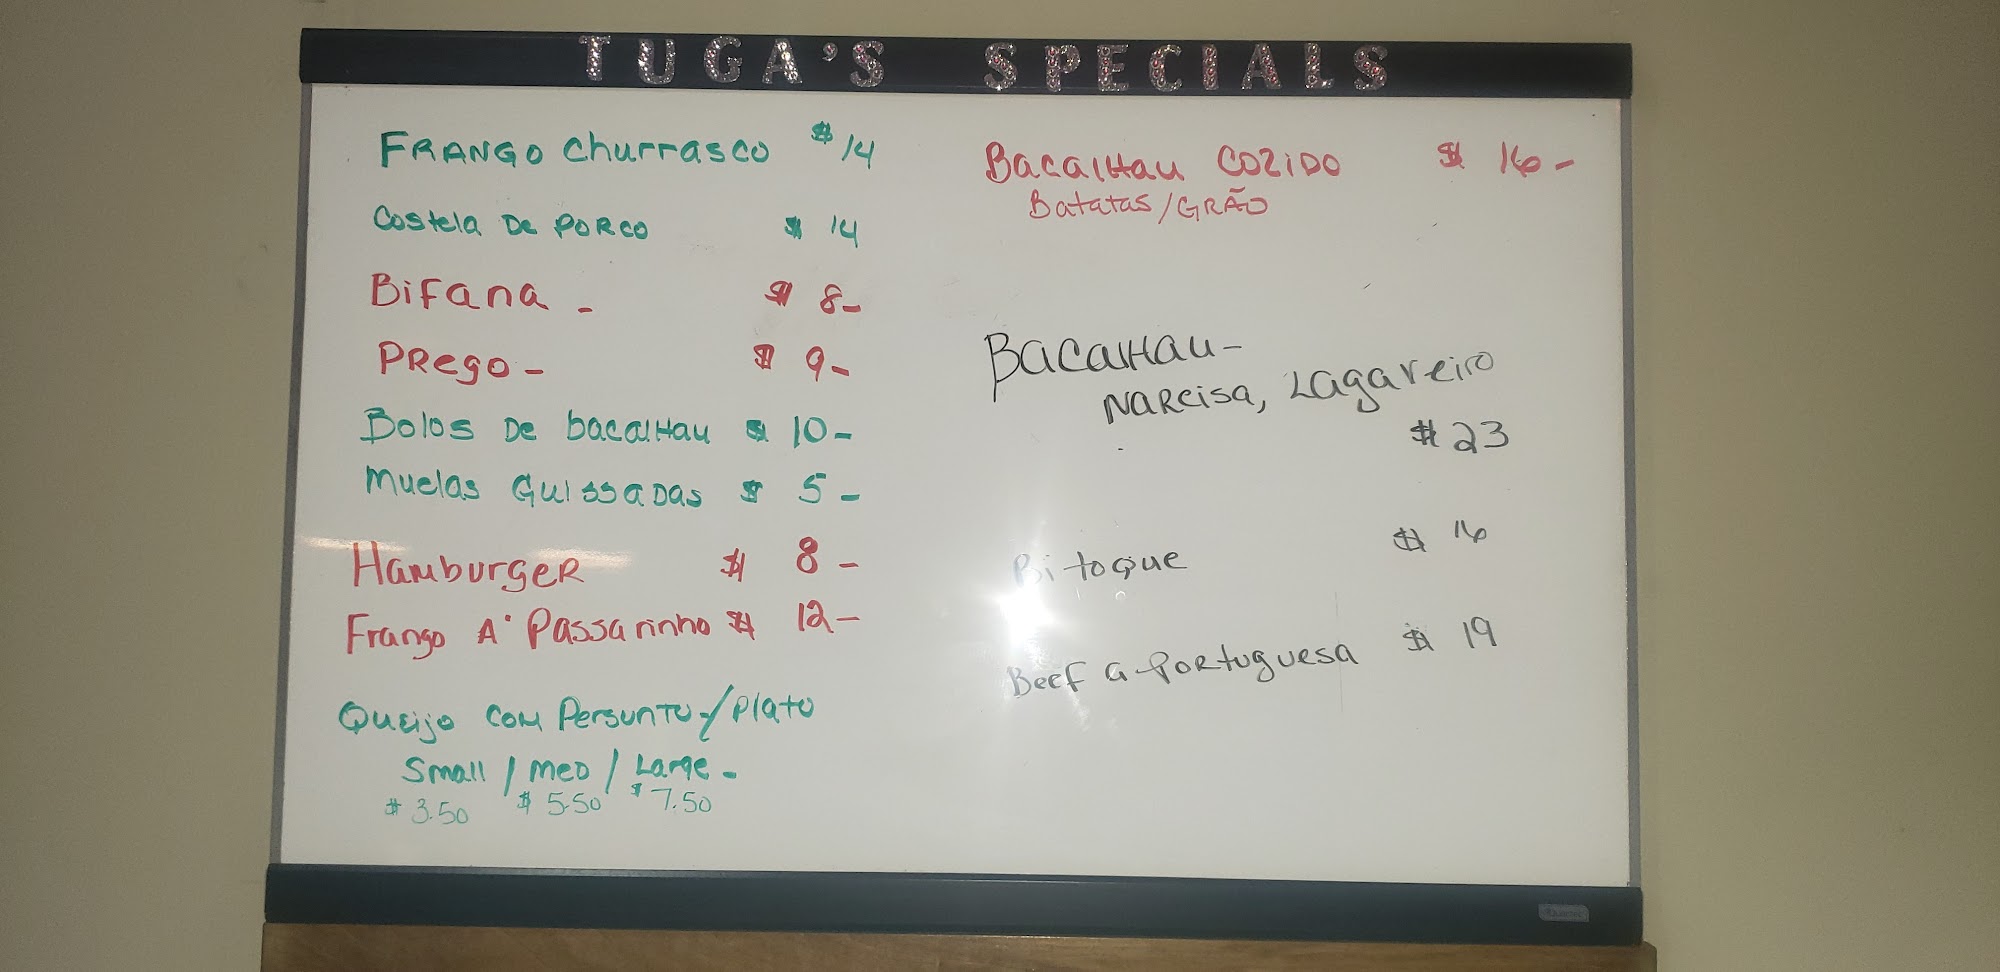 TUGA'S SPECIALS
FRANGO Churrasco $14
Costela De PORCO $ 14
BiFana - $ 8-
PRego - $ 9-
Bolos De bacalHau $ 10-
Muelas Guissadas $ 5-
HamburgeR $ 8-
Frango A' Passarinho $ 12-
Queijo com Persunto-/Plato
Small / Med / Large -
$ 3.50 $ 5.50 $ 7.50
BacalHau COZIDO $ 16-
Batatas/GRÃO
BacalHau-
NaRcisa, Lagareiro
$ 23
Bitoque $ 16
Beef a-PoRtuguesa $ 19